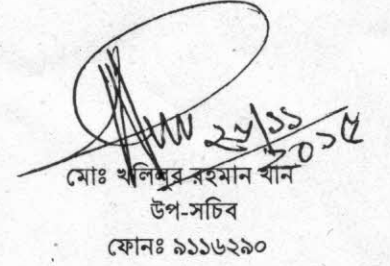 ২৫/১১
২০১৫
মোঃ খলিলুর রহমান খান
উপ-সচিব
ফোনঃ ৯১১৬২৯০